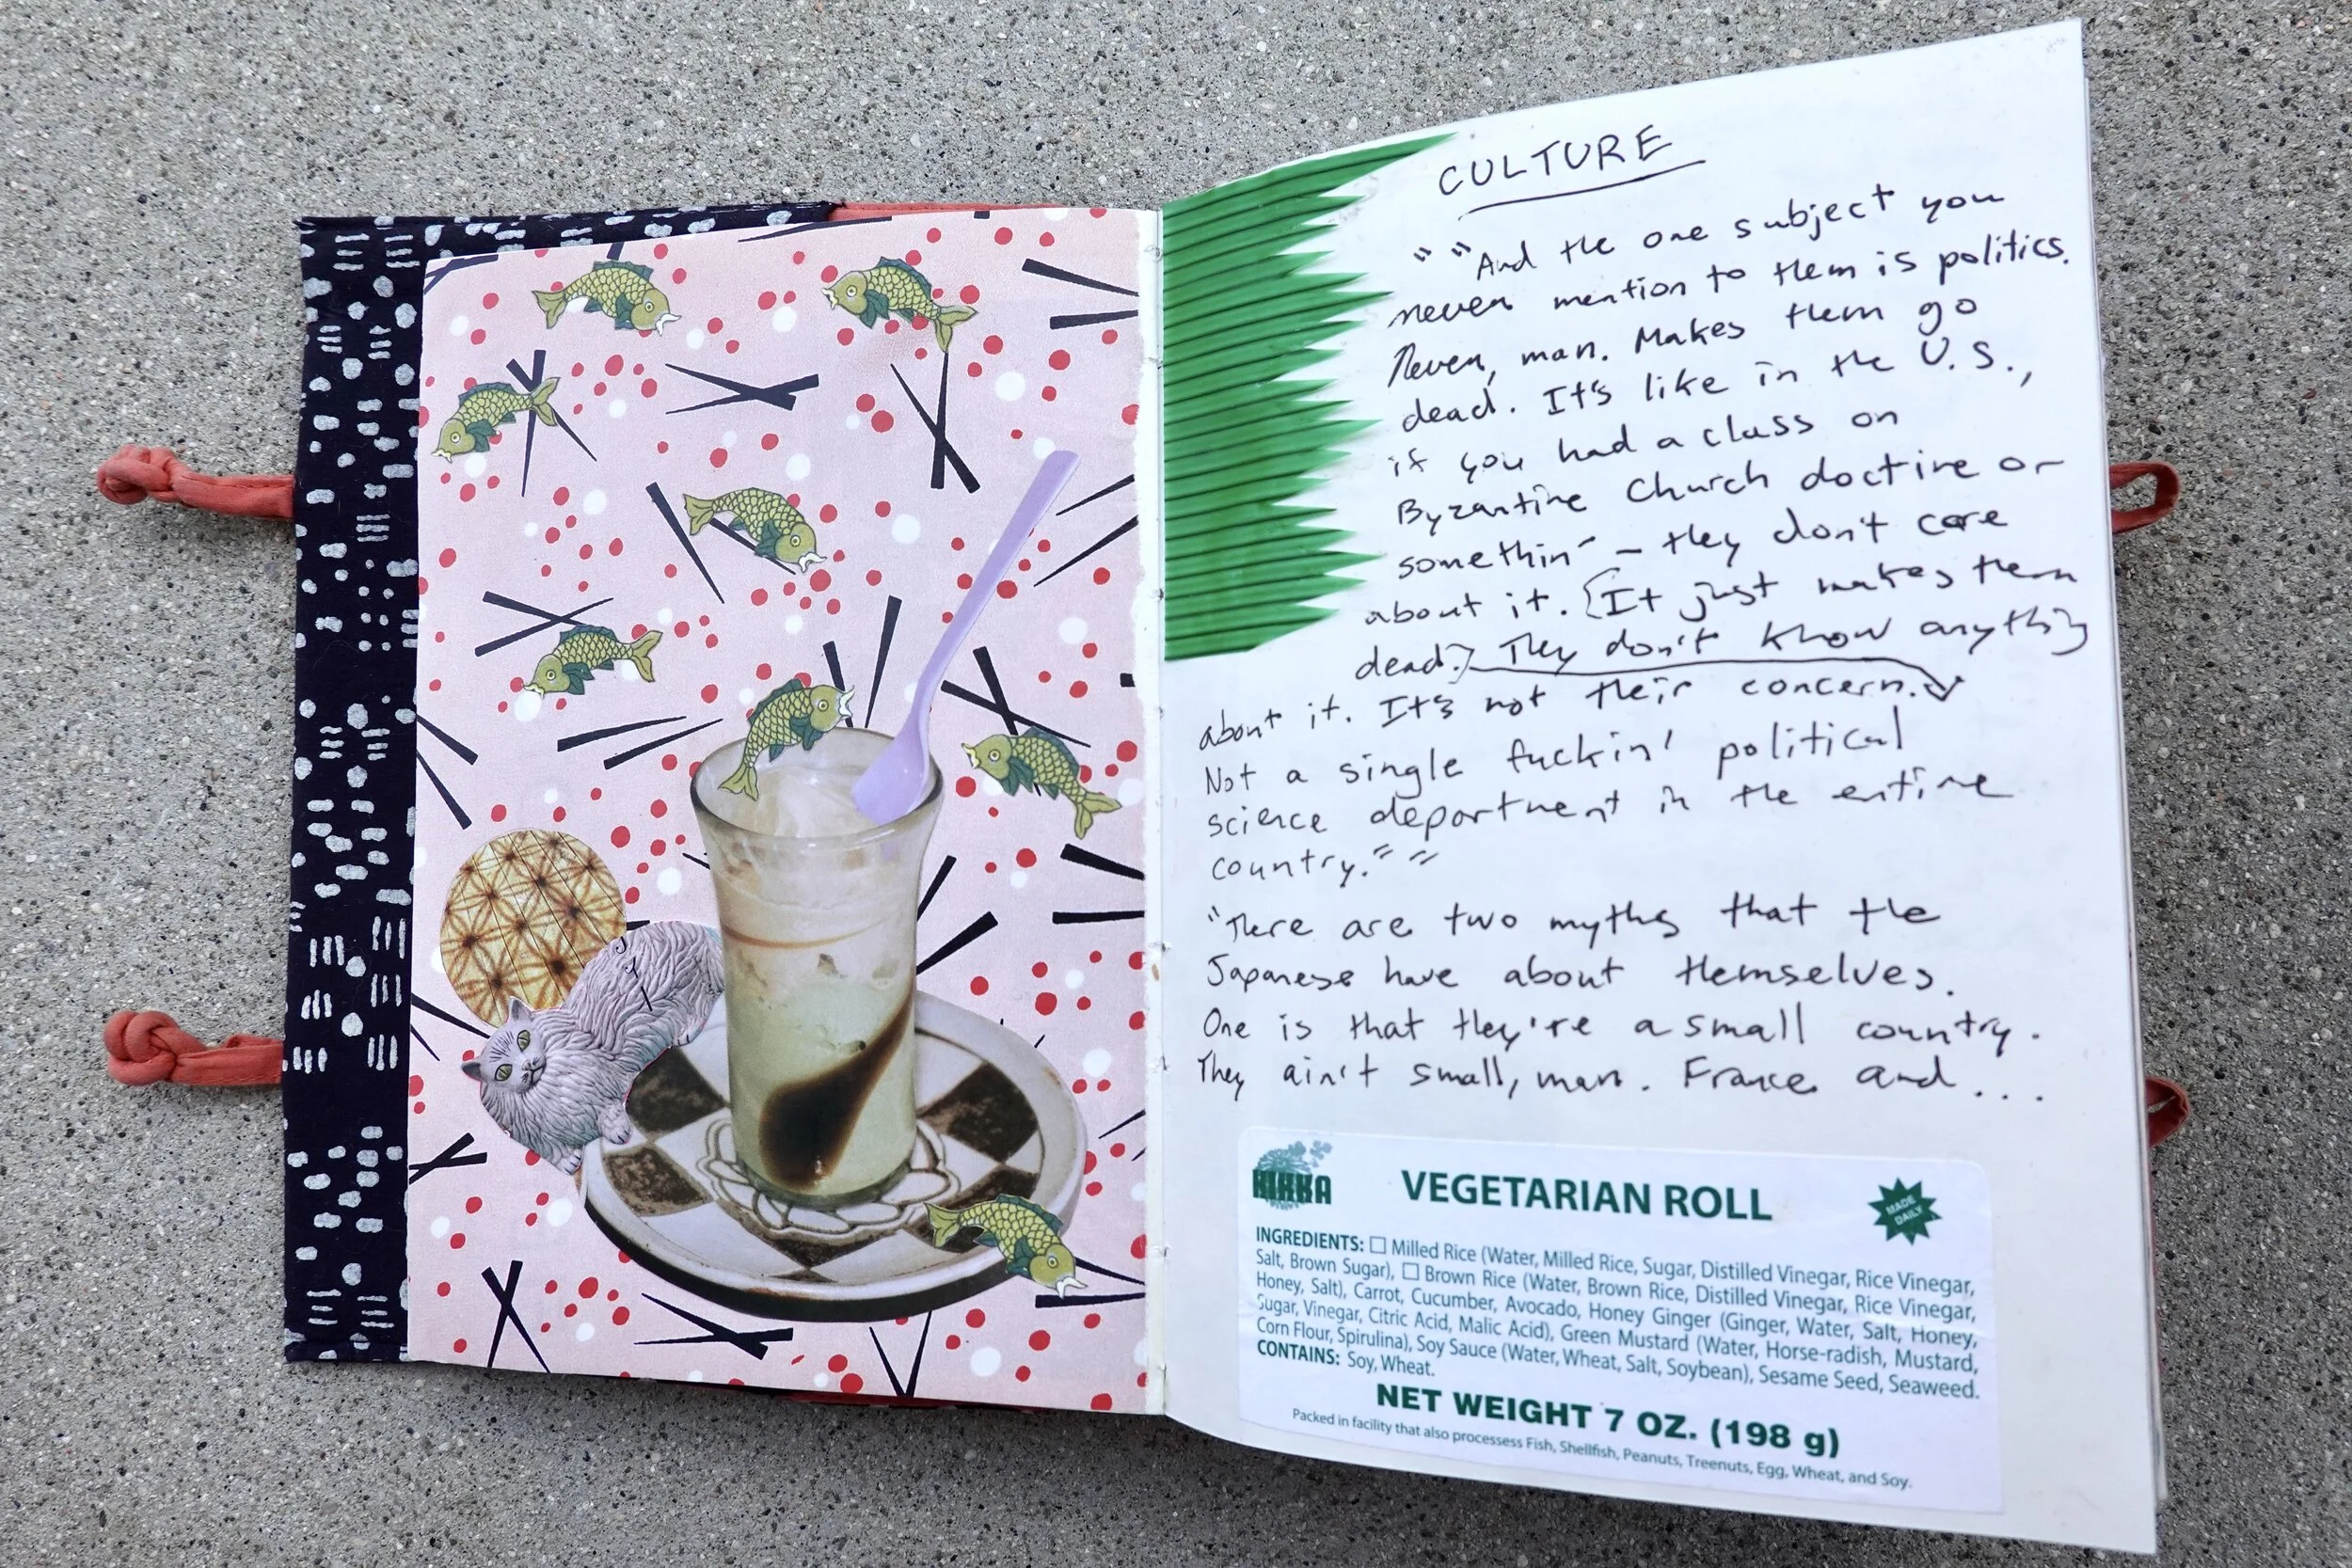 CULTURE
" "And the one subject you
never mention to them is politics.
Never, man. Makes them go
dead. It's like in the U.S.,
if you had a class on
Byzantine Church doctrine or
somethin' – they don't care
about it. [It just makes them
dead.] They don't know anything
about it. It's not their concern.
Not a single fuckin' political
science department in the entire
country." "
"There are two myths that the
Japanese have about themselves.
One is that they're a small country.
They ain't small, man. France and...
KIKKA
VEGETARIAN ROLL
MADE
DAILY
INGREDIENTS: ☐ Milled Rice (Water, Milled Rice, Sugar, Distilled Vinegar, Rice Vinegar,
Salt, Brown Sugar), ☐ Brown Rice (Water, Brown Rice, Distilled Vinegar, Rice Vinegar,
Honey, Salt), Carrot, Cucumber, Avocado, Honey Ginger (Ginger, Water, Salt, Honey,
Sugar, Vinegar, Citric Acid, Malic Acid), Green Mustard (Water, Horse-radish, Mustard,
Corn Flour, Spirulina), Soy Sauce (Water, Wheat, Salt, Soybean), Sesame Seed, Seaweed.
CONTAINS: Soy, Wheat.
NET WEIGHT 7 OZ. (198 g)
Packed in facility that also processess Fish, Shellfish, Peanuts, Treenuts, Egg, Wheat, and Soy.